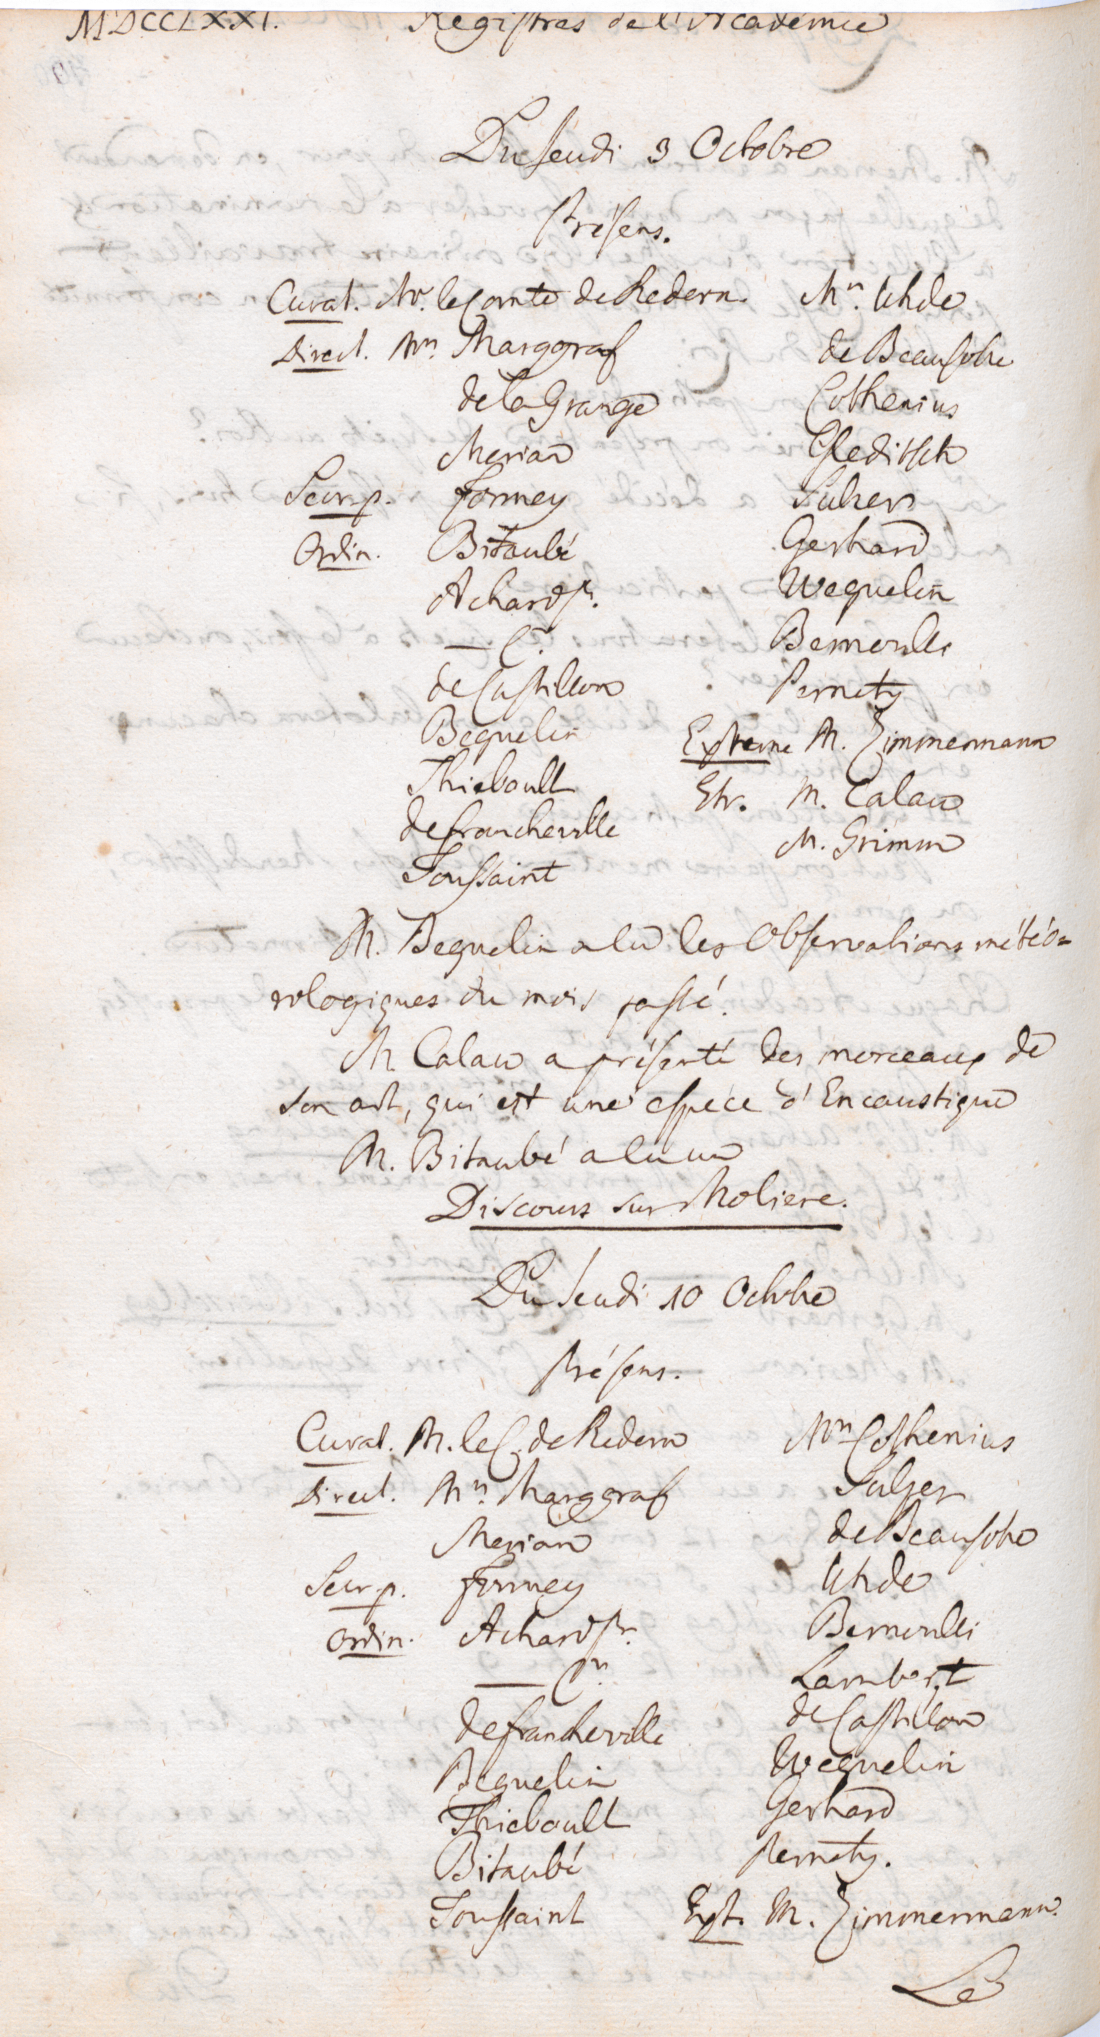 MDCCLXXI. Registres de l'Academie
Du Jeudi 3 Octobre
Présens.
Curat. Mr. le Comte de Redern.
Direct. Mrs. Marggraf
de la Grange
Merian
Secr. p. Formey
Ordin. Bitaubé
Achard pr.
— C.
de Castillon
Beguelin
Thiebault
de Francheville
Toussaint
Mrs. Uhde
de Beausobre
Cothenius
Gleditsch
Sulzer
Gerhard
Weguelin
Bernoulli
Pernety
Externe M. Zimmermann
Etr. M. Calau
M. Grimm
M. Beguelin a lu les Observations météo=
rologiques du mois passé.
M Calau a présenté des morceaux de
son art, qui est une espece d'Encaustique
M. Bitaubé a lu un
Discours sur Moliere.
Du Jeudi 10 Octobre
Présens.
Curat. M. le C. de Redern
Direct. Mrs. Marggraf
Merian
Secr p. Formey
Ordin. Achard pr.
— Cn
de Francheville
Beguelin
Thiebault
Bitaubé
Toussaint
Mrs Cothenius
Sulzer
de Beausobre
Uhde
Bernoulli
Lambert
de Castillon
Weguelin
Gerhard
Pernety.
Ext. M. Zimmermann.
Le